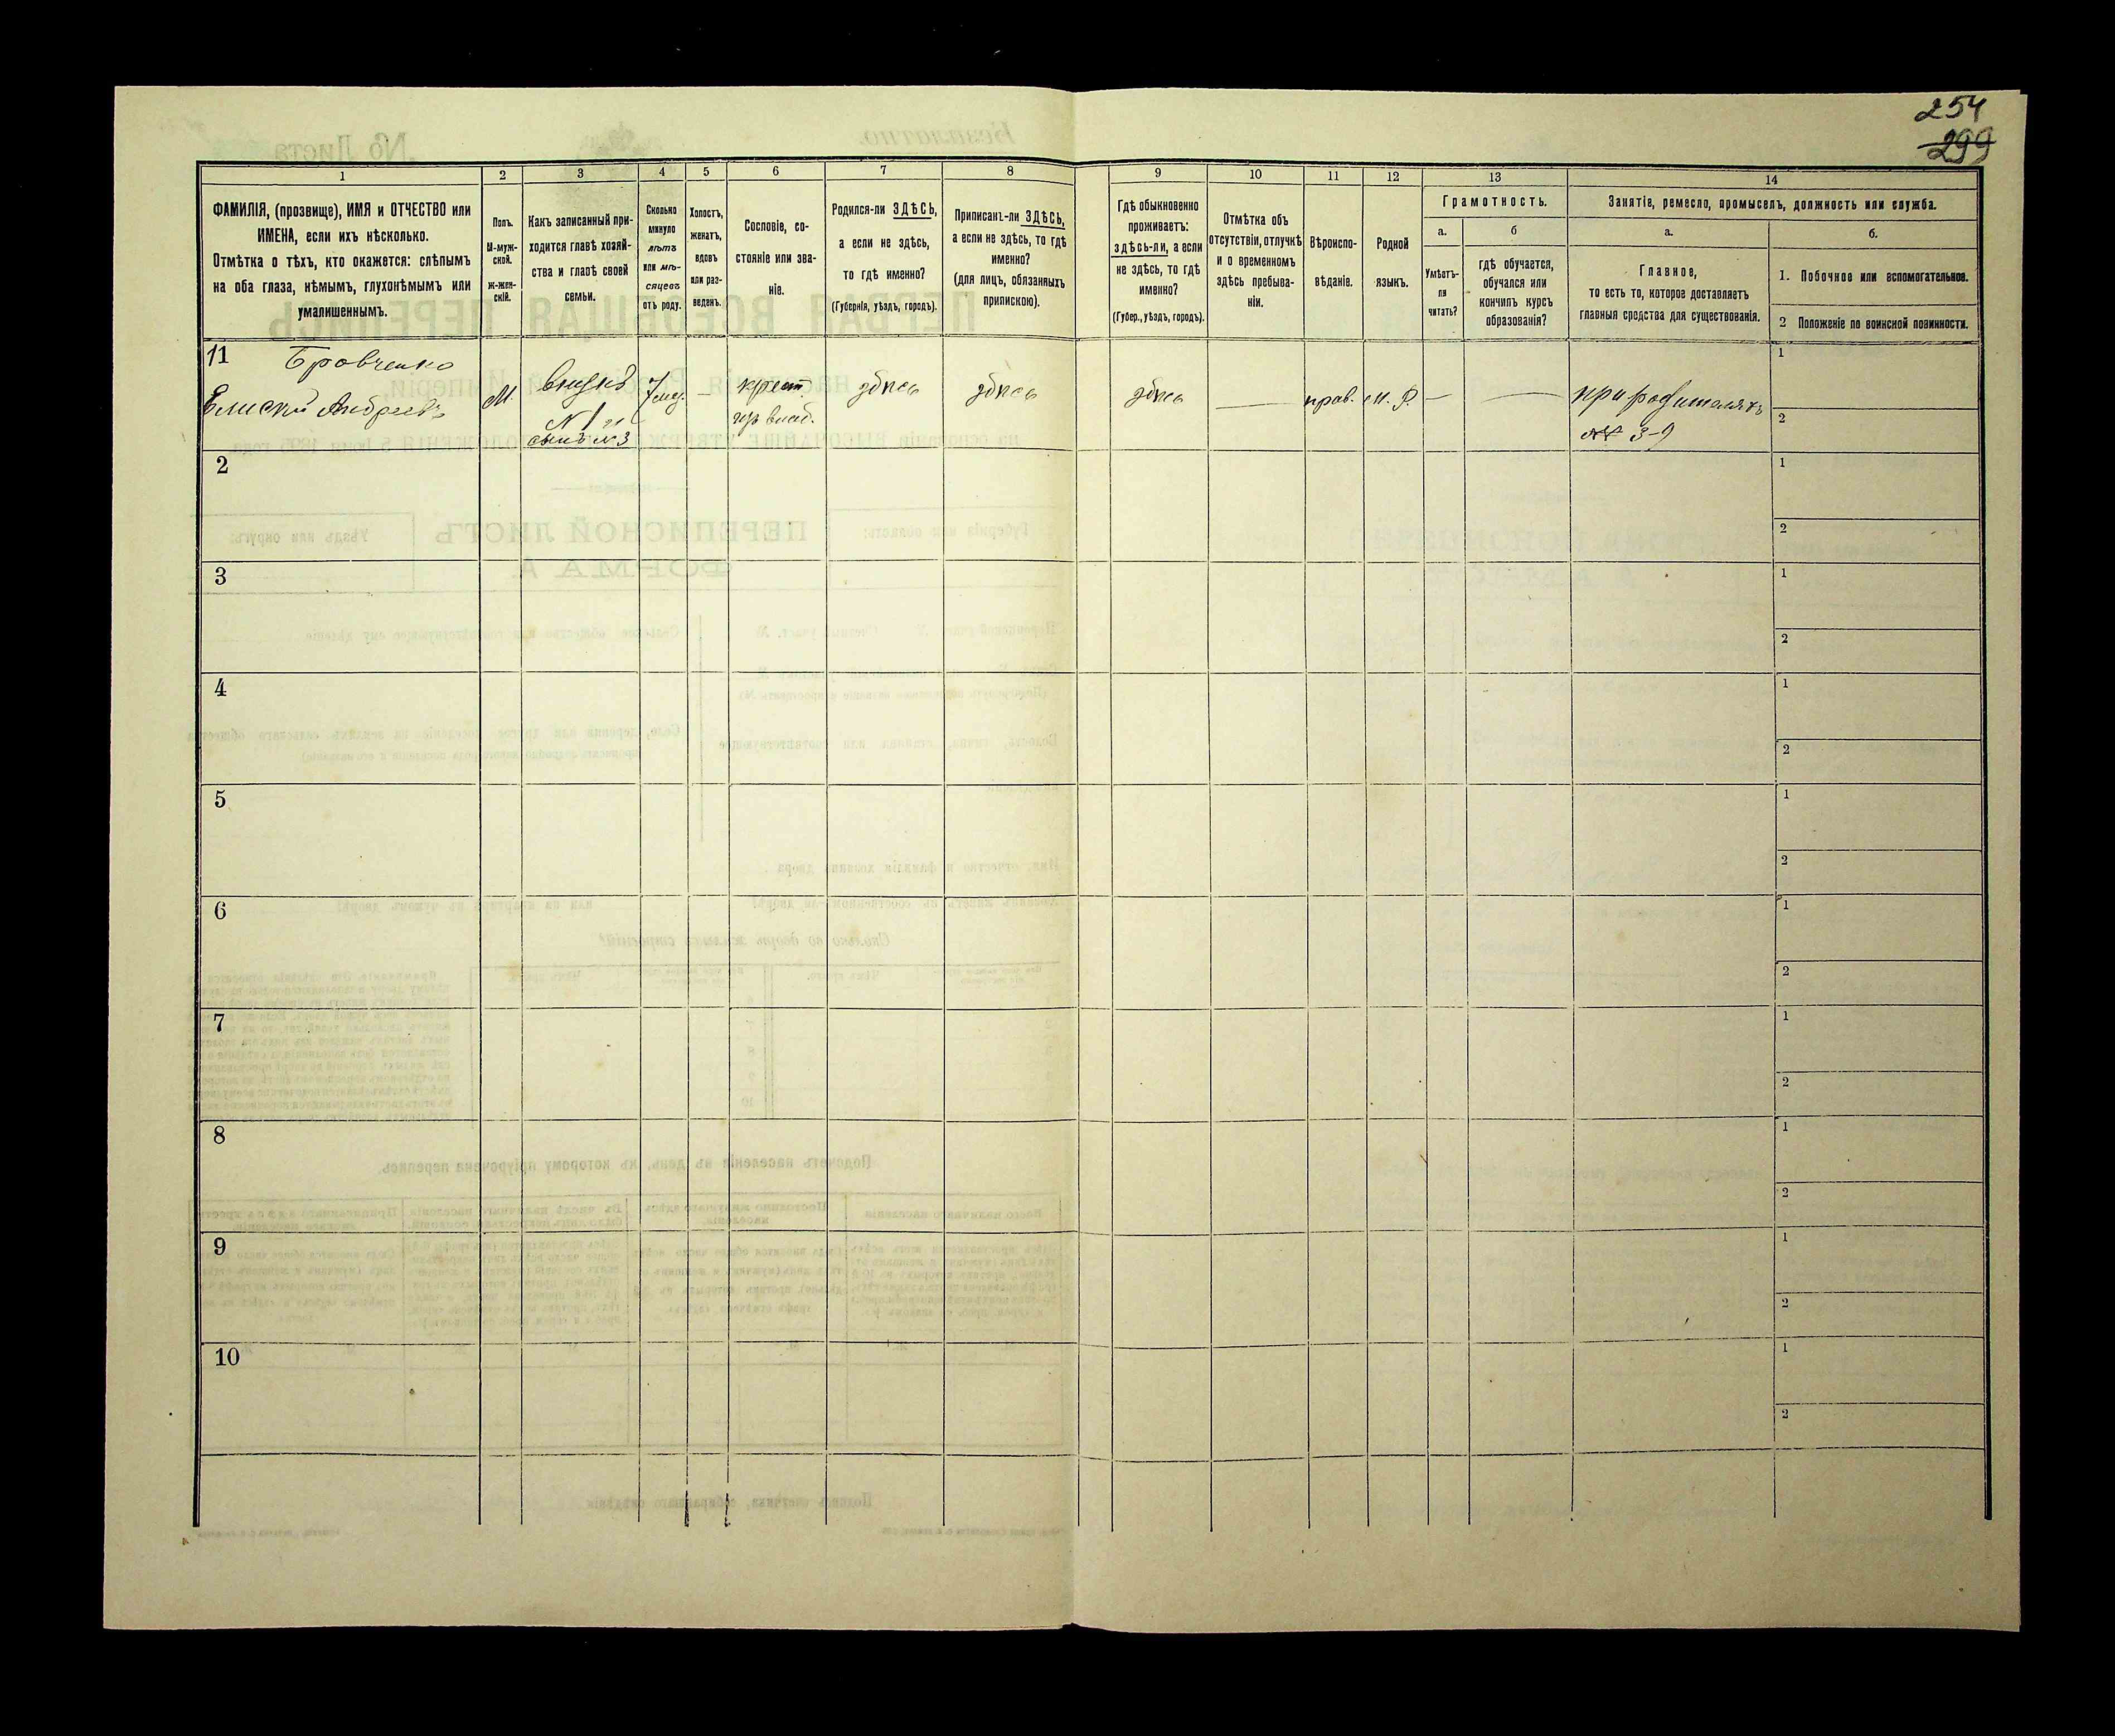 254
299
1
2
3
4
5
6
7
8
9
10
11
12
13
14
ФАМИЛІЯ, (прозвище), ИМЯ и ОТЧЕСТВО или
ИМЕНА, если ихъ нѣсколько.
Отмѣтка о тѣхъ, кто окажется: слѣпымъ
на оба глаза, нѣмымъ, глухонѣмымъ или
умалишеннымъ.
Полъ.
М-муж-
ской.
ж-жен-
скій.
Какъ записанный при-
ходится главѣ хозяй-
ства и главѣ своей
семьи.
Сколько
минуло
лѣтъ
или мѣ-
сяцевъ
отъ роду.
Холостъ,
женатъ,
вдовъ
или раз-
веденъ.
Сословіе, со-
стояніе или зва-
ніе.
Родился-ли ЗДѢСЬ,
а если не здѣсь,
то гдѣ именно?
(Губернія, уѣздъ, городъ).
Приписанъ-ли ЗДѢСЬ,
а если не здѣсь, то гдѣ
именно?
(для лицъ, обязанныхъ
припискою).
Гдѣ обыкновенно
проживаетъ:
здѣсь-ли, а если
не здѣсь, то гдѣ
именно?
(Губер., уѣздъ, городъ).
Отмѣтка объ
отсутствіи, отлучкѣ
и о временномъ
здѣсь пребыва-
ніи.
Вѣроиспо-
вѣданіе.
Родной
языкъ.
Грамотность.
а.
Умѣетъ-
ли
читать?
б
гдѣ обучается,
обучался или
кончилъ курсъ
образованія?
Занятіе, ремесло, промыселъ, должность или служба.
а.
Главное,
то есть то, которое доставляетъ
главныя средства для существованія.
б.
1. Побочное или вспомогательное.
2 Положеніе по воинской повинности.
11 Бровченко
Елисей Андреевъ
М.
внукъ
N 1й
сынъ N 3
7 мц.
—
крест.
изъ влад.
здѣсь
здѣсь
здѣсь
—
прав.
М. Р.
—
—
при родителяхъ
№ 3-9
1
2
2
1
2
3
1
2
4
1
2
5
1
2
6
1
2
7
1
2
8
1
2
9
1
2
10
1
2